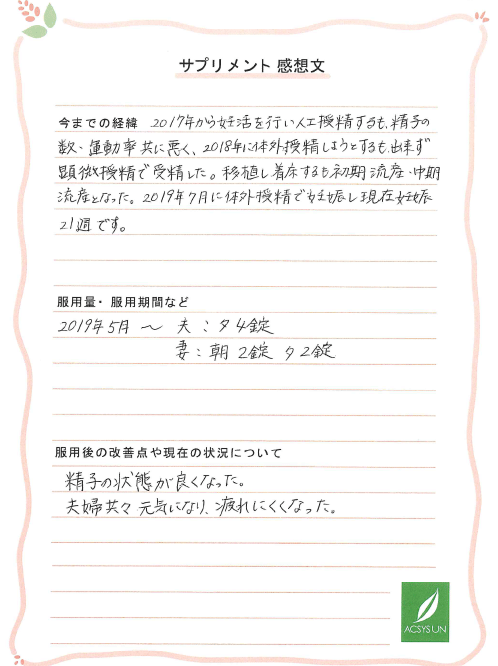 サプリメント 感想文
今までの経緯 2017年から妊活を行い人工授精するも、精子の
数・運動率共に悪く、2018年に体外授精しようとするも、出来ず
顕微授精で受精した。移植し着床するも初期流産・中期
流産となった。2019年7月に体外授精で妊娠し現在妊娠
21週です。
服用量・服用期間など
2019年5月 〜 夫：夕4錠
妻：朝2錠 夕2錠
服用後の改善点や現在の状況について
精子の状態が良くなった。
夫婦共々元気になり、疲れにくくなった。
ACSYSUN